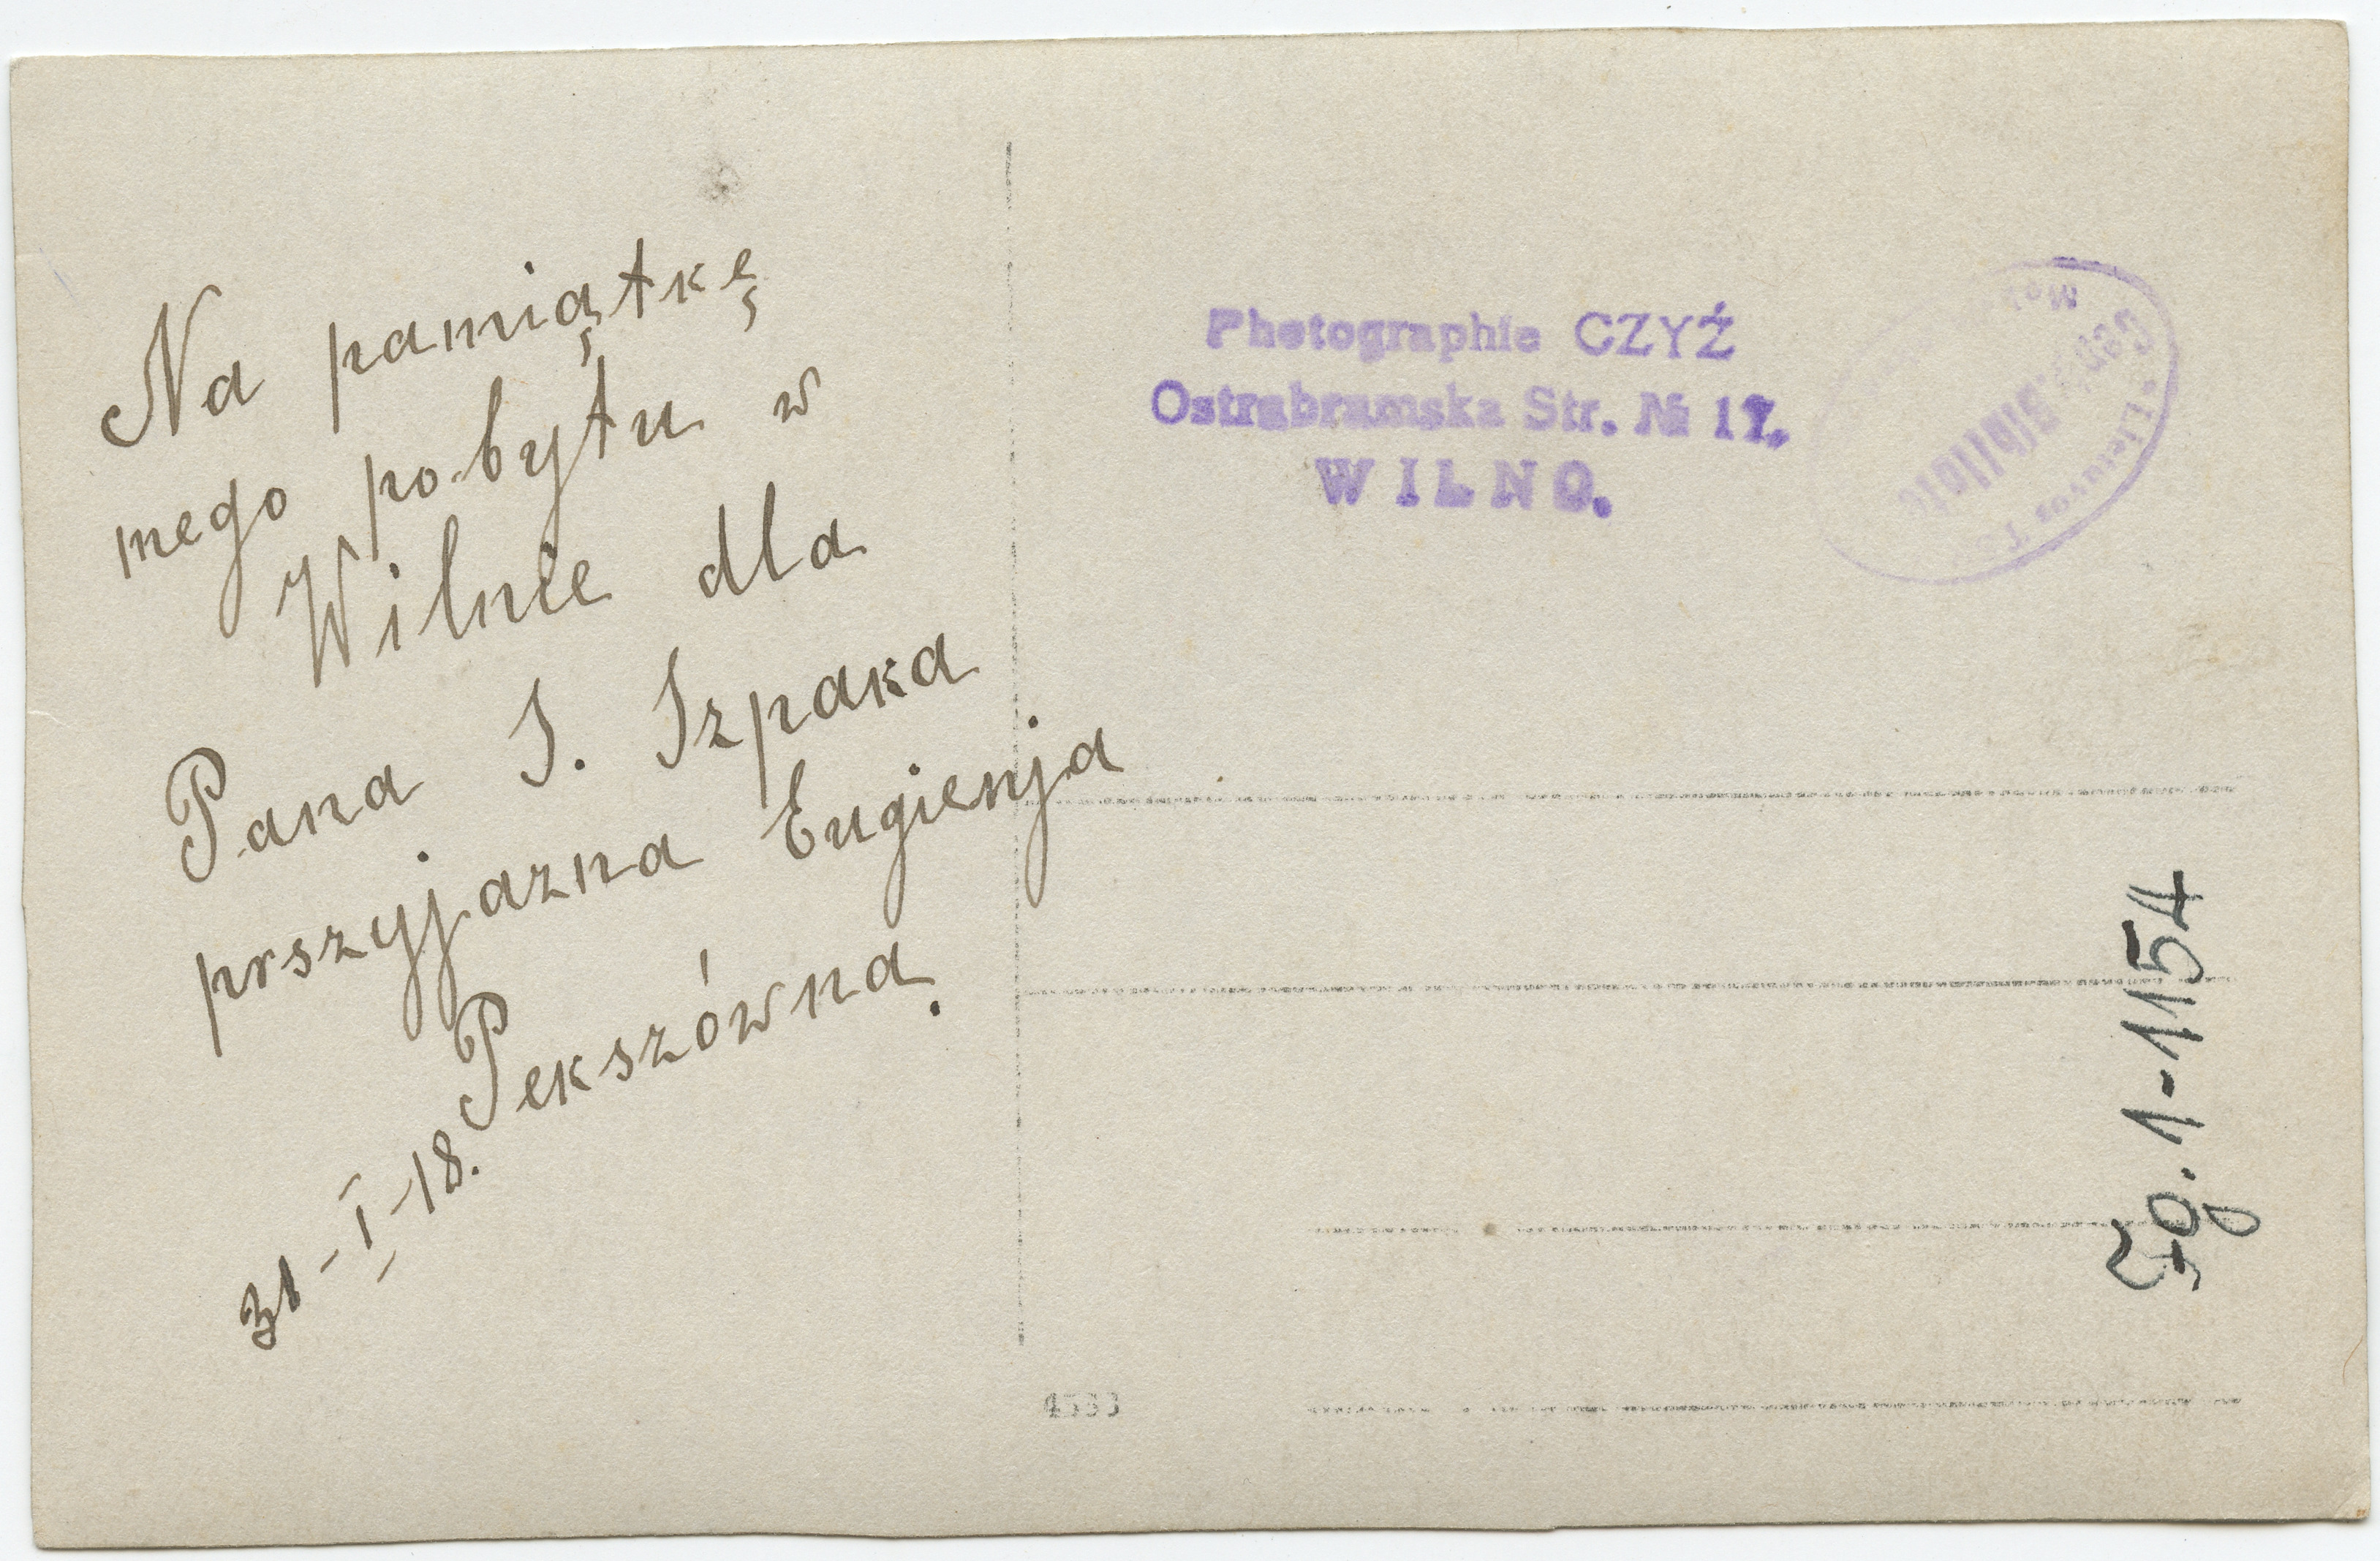 Na pamiątkę
mego pobytu w
Wilnie dla
Pana S. Szpaka
prszyjazna Eugienja
Pekszówna.
31-I-18.
Photographie CZYŻ
Ostrabramska Str. № 17.
WILNO.
Lietuvos T
Fg. 1-1154